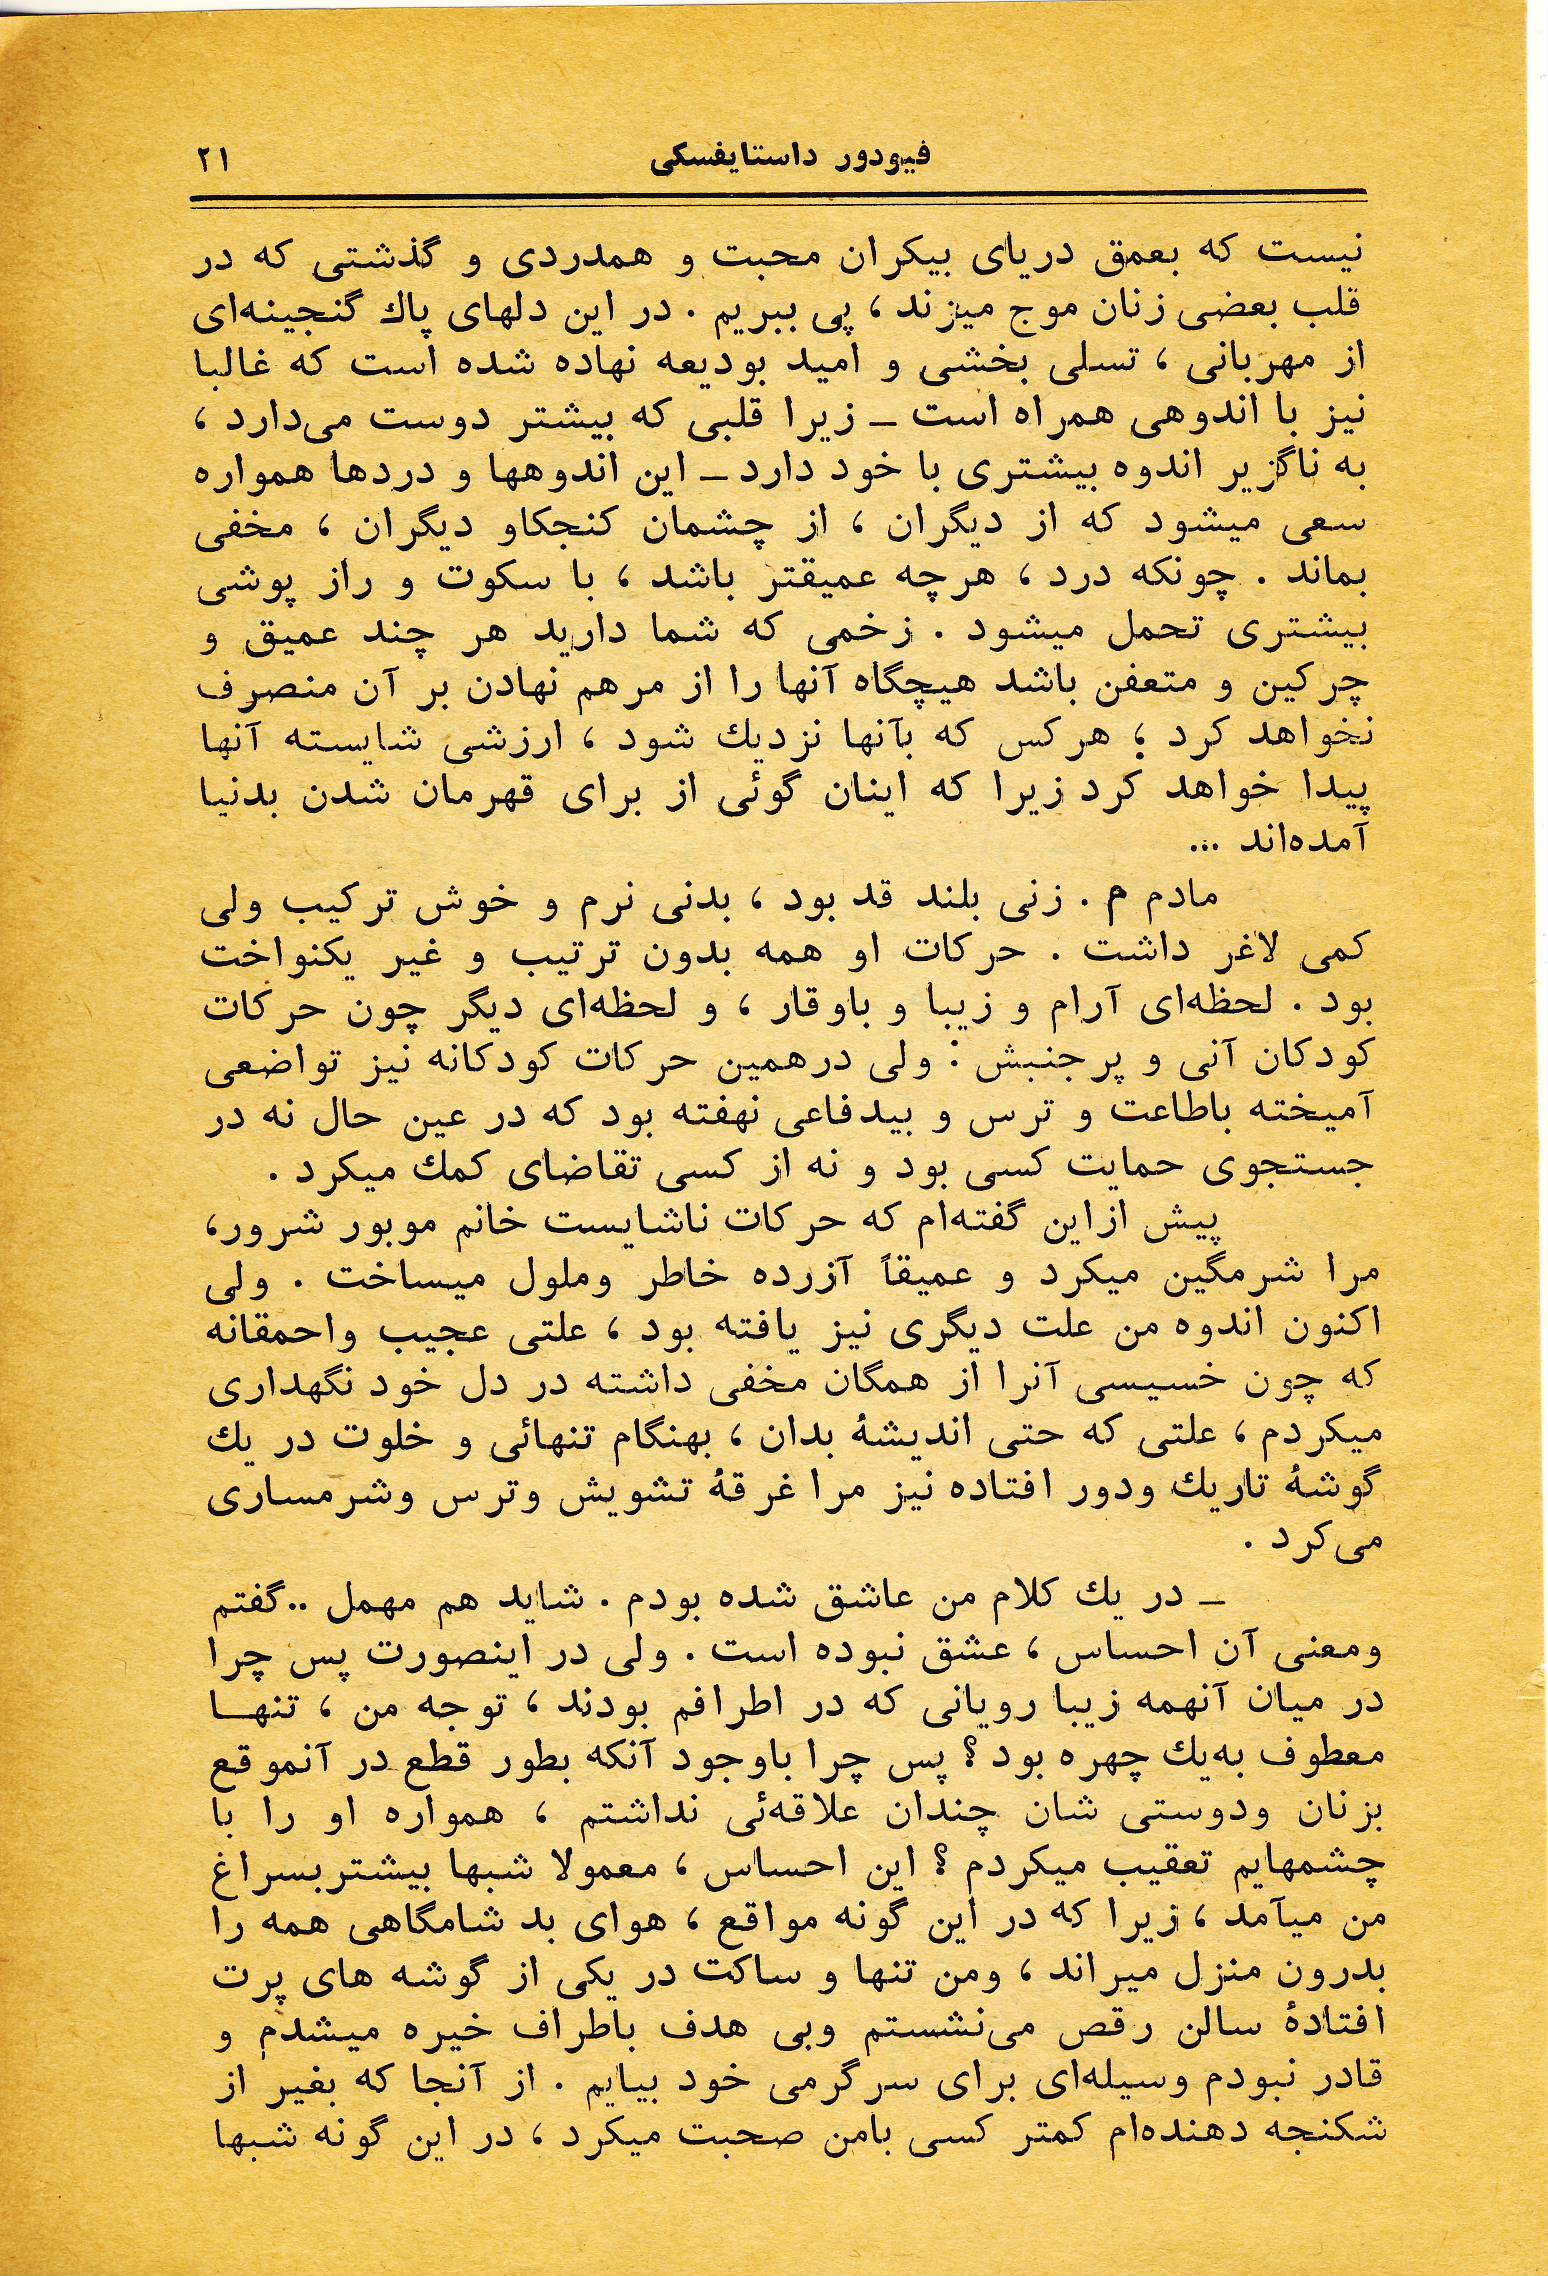 فیودور داستایفسکی ۲۱
نیست که بعمق دریای بیکران محبت و همدردی و گذشتی که در
قلب بعضی زنان موج میزند ، پی ببریم . در این دلهای پاك گنجینه‌ای
از مهربانی ، تسلی بخشی و امید بودیعه نهاده شده است که غالبا
نیز با اندوهی همراه است ــ زیرا قلبی که بیشتر دوست می‌دارد ،
به ناگزیر اندوه بیشتری با خود دارد ــ این اندوهها و دردها همواره
سعی میشود که از دیگران ، از چشمان کنجکاو دیگران ، مخفی
بماند . چونکه درد ، هرچه عمیقتر باشد ، با سکوت و راز پوشی
بیشتری تحمل میشود . زخمی که شما دارید هر چند عمیق و
چرکین و متعفن باشد هیچگاه آنها را از مرهم نهادن بر آن منصرف
نخواهد کرد ؛ هرکس که بآنها نزدیك شود ، ارزشی شایسته آنها
پیدا خواهد کرد زیرا که اینان گوئی از برای قهرمان شدن بدنیا
آمده‌اند ...
مادم م . زنی بلند قد بود ، بدنی نرم و خوش ترکیب ولی
کمی لاغر داشت . حرکات او همه بدون ترتیب و غیر یکنواخت
بود . لحظه‌ای آرام و زیبا و باوقار ، و لحظه‌ای دیگر چون حرکات
کودکان آنی و پرجنبش : ولی درهمین حرکات کودکانه نیز تواضعی
آمیخته باطاعت و ترس و بیدفاعی نهفته بود که در عین حال نه در
جستجوی حمایت کسی بود و نه از کسی تقاضای کمك میکرد .
پیش ازاین گفته‌ام که حرکات ناشایست خانم موبور شرور،
مرا شرمگین میکرد و عمیقاً آزرده خاطر وملول میساخت . ولی
اکنون اندوه من علت دیگری نیز یافته بود ، علتی عجیب واحمقانه
که چون خسیسی آنرا از همگان مخفی داشته در دل خود نگهداری
میکردم ، علتی که حتی اندیشهٔ بدان ، بهنگام تنهائی و خلوت در یك
گوشهٔ تاریك ودور افتاده نیز مرا غرقهٔ تشویش وترس وشرمساری
می‌کرد .
ــ در یك کلام من عاشق شده بودم . شاید هم مهمل ..گفتم
ومعنی آن احساس ، عشق نبوده است . ولی در اینصورت پس چرا
در میان آنهمه زیبا رویانی که در اطرافم بودند ، توجه من ، تنهـا
معطوف به‌یك چهره بود ؟ پس چرا باوجود آنکه بطور قطع در آنموقع
بزنان ودوستی شان چندان علاقه‌ئی نداشتم ، همواره او را با
چشمهایم تعقیب میکردم ؟ این احساس ، معمولا شبها بیشتربسراغ
من میآمد ، زیرا که در این گونه مواقع ، هوای بد شامگاهی همه را
بدرون منزل میراند ، ومن تنها و ساکت در یکی از گوشه های پرت
افتادهٔ سالن رقص می‌نشستم وبی هدف باطراف خیره میشدم و
قادر نبودم وسیله‌ای برای سرگرمی خود بیایم . از آنجا که بغیر از
شکنجه دهنده‌ام کمتر کسی بامن صحبت میکرد ، در این گونه شبها